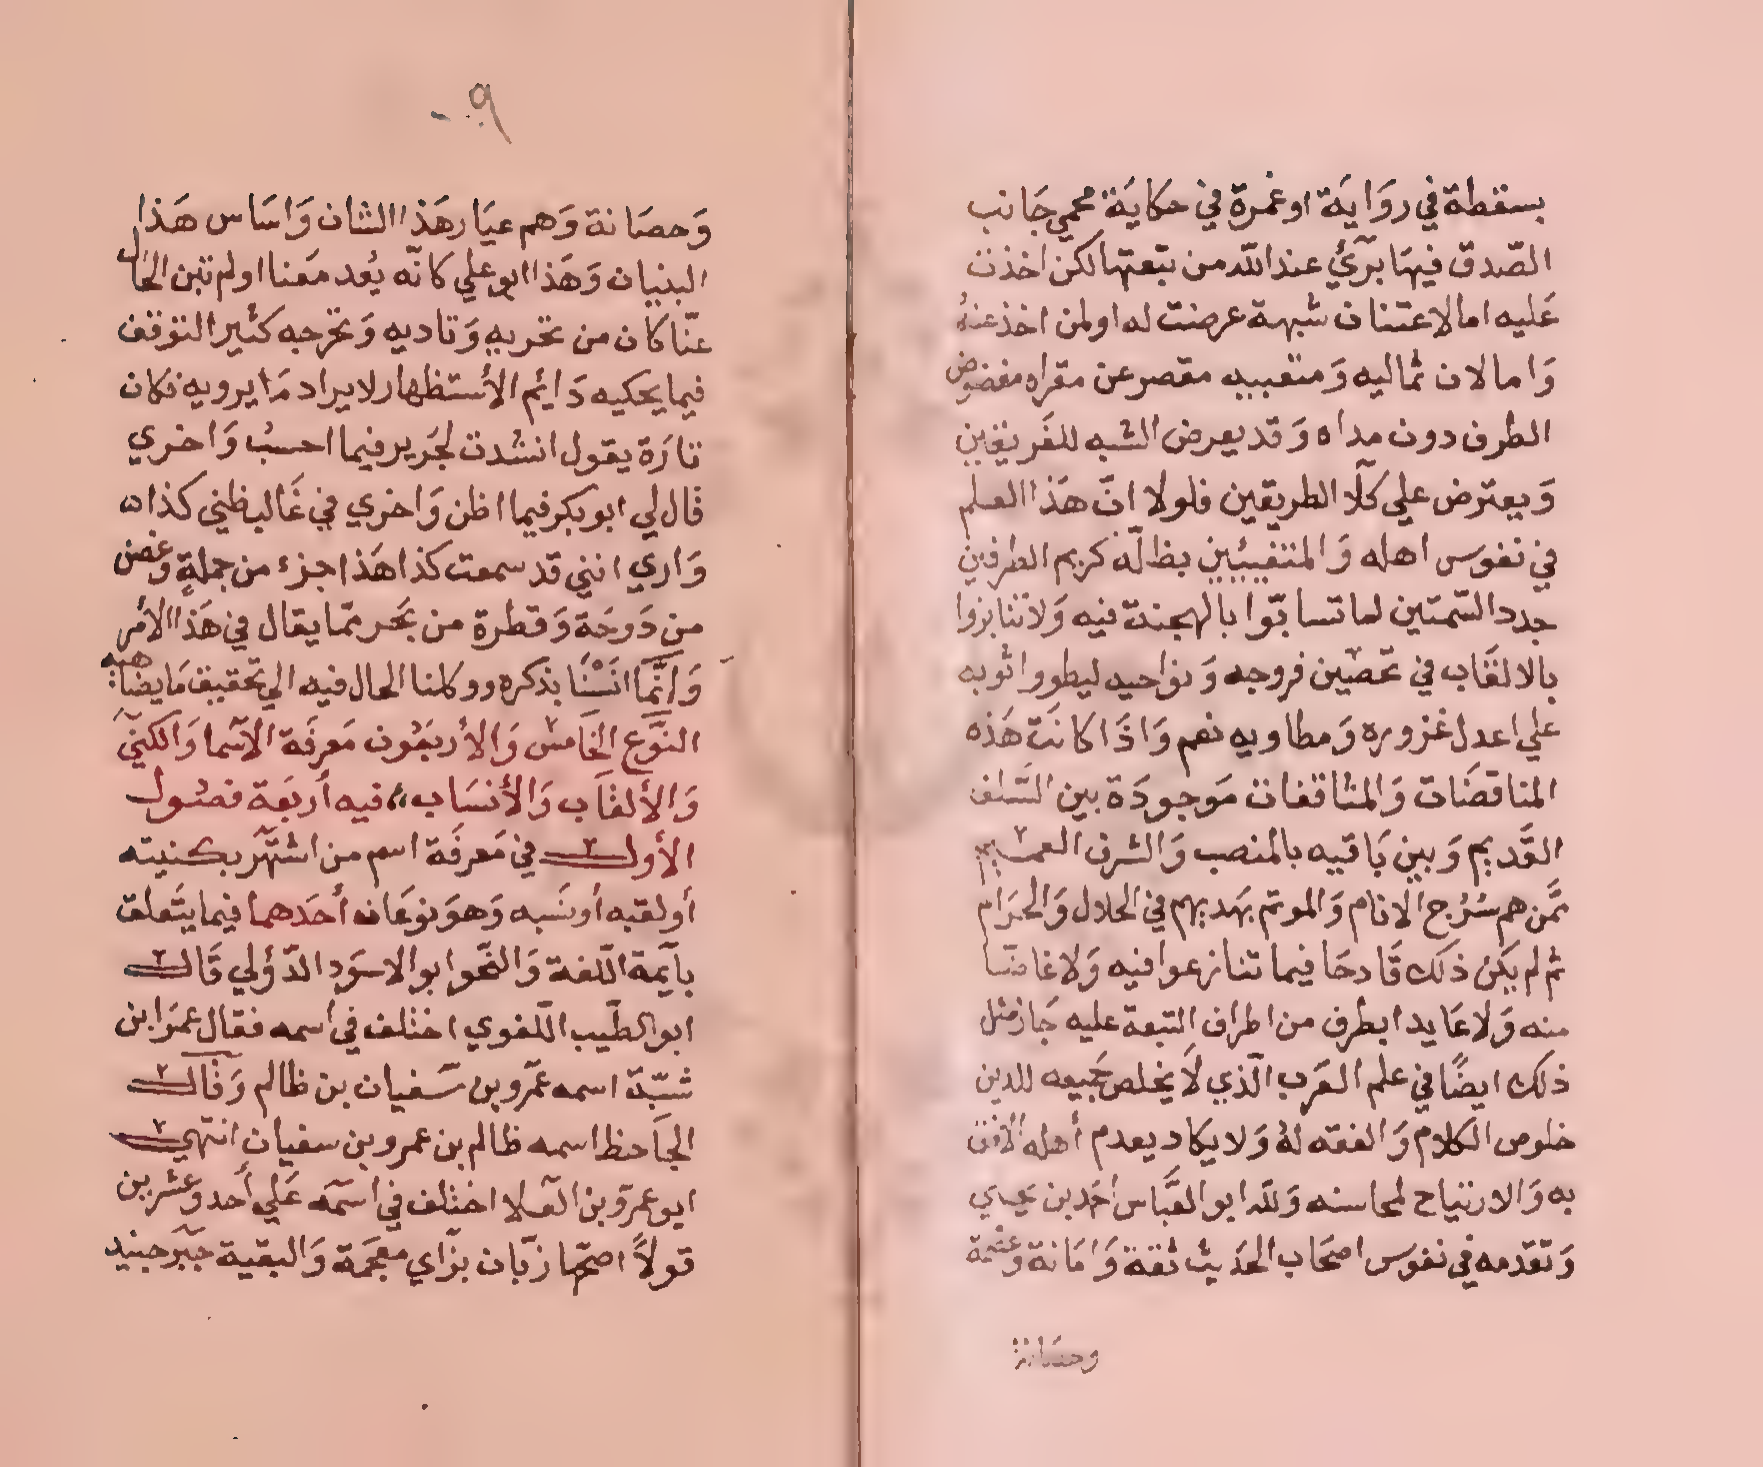 بسقطة في روَايَة او غمرة في حكايَة محمي جَانب
الصّدق فيهَا برّيُ عند اللّه من تبعتها لكن اخذت
عَليه اما لاعتنان شبهة عرضت له او لمن اخذ عنهُ
وَاما لان ثماليه وَمتغيبيه مقصر عن مقراه مغضوض
الطرف دون مداه وَقد يعرض الشبه للفَريقين
وَيعترض علي كلّا الطريقين فلولا انّ هَذا العلم
في نفوس اهله وَالمتفيئين بظلّه كريم الطرفين
جدد السّمتين لما تسابّوا بالهجنة فيه وَلا تنابزوا
بالالقَاب في تحصين فروجه وَنواحيه ليطووا ثوبه
علي اعدل غزوره وَمطاويه نعم وَاذَا كانَت هَذه
المناقضَات وَالمثاقفات مَوجودَة بين السَّلف
القَديم وَبين بَاقيه بالمنصب وَالشرف العميم
ممَّن هم سُرُج الانام وَالموتم بهَديهم في الحلال وَالحَرَام
ثم لم يكن ذلك قَادحَا فيما تنازعوا فيه وَلا غاضّا
منه وَلا عَايدا بطرف من اطراف التبعة عليه جَاز مثل
ذلك ايضًا في علم العَرَب الّذي لَا يخلص جَميعه للدين
خلوص الكلام وَالفقه لهُ وَلا يكاد يعدم أهله الانق
به وَالارتياح لمحاسنه وَللّه ابو العَبَّاس احمَد بن يحيي
وَتقَدمه في نفوسَ اصحَاب الحَديث ثقَة وَامَانة وَعصمة
وحصَانة
٩
وَحصَانة وَهم عيَار هَذا الشان وَاسَاس هَذا
البنيان وَهَذا ابو علي كانّه بُعد مَعنا او لم تبن الحَال
عنّا كان من تحريهِ وَتاديه وَتحرجه كثير التوقف
فيما يحكيه دَايم الأستظهار لايراد مَا يرويه فكان
تارَة يقول انشدت لجَرير فيما احسبُ وَاخري
قَال لي ابو بكر فيما اظن وَاخري في غَالب ظني كذا
وَاري انني قد سمعت كذا هَذا جزء من جملةٍ وَغصن
من دَوحَة وَقطرة من بَحر ممّا يقال في هَذا الأمر
وَانَّمَا انَسْنَا بذكره ووكلنا الحال فيه الي تحقيق مَا يضَاهيه
النَّوَع الخَامس وَالأربعُون مَعرفَة الأسما وَالكني
وَالألقَاب وَالأنسَاب فيه أربَعَة فصُول
الأول في مَعرفَة اسم من اشتَهَر بكنيته
أو لقبه أو نسَبه وَهوَ نوعَان أحَدهما فيما يتَعلق
بأيمة اللّغة وَالنَّحو ابو الاسوَد الدّؤلي قَال
ابو الطَّيب اللّغوي اختلف في أسمه فقال عمَر ابن
شبّة اسمه عمَرو بن سَفيان بن ظالم وَقَال
الجَاحظ اسمه ظالم بن عمرو بن سفيان انتهي
ابو عمرَو بن العَلا اختلف في اسمَه عَلي أحد وَعشرين
قولًا اصحّها زبّان بزَاي معجَمة وَالبقية جَبَر جنيد